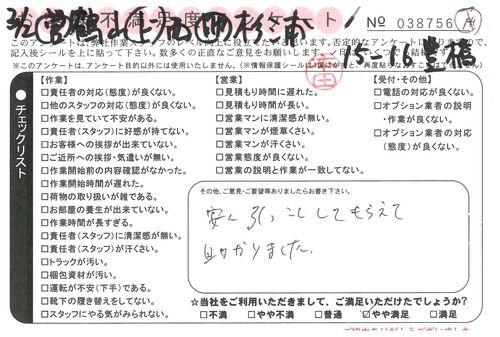 不満足度アンケート
No 038756
このアンケートは、弊社作業スタッフのレベル向上に役立てたいと思います。否定的なアンケートに
記入後シールを上に貼って下さい。数多くの正直なご意見をお願い
※このアンケートは、アンケート目的以外には使用いたしません。(※情報保護シールは
15-16 豊橋
チェックリスト
【作業】
□責任者の対応(態度)が良くない。
□他のスタッフの対応(態度)が良くない。
□作業を見ていて不安がある。
□責任者(スタッフ)に好感が持てない。
□お客様への挨拶が出来ていない。
□ご近所への挨拶・気遣いが無い。
□作業開始前の内容確認がなかった。
□作業開始時間が遅れた。
□荷物の取り扱いが雑である。
□お部屋の養生が出来ていない。
□作業時間が長すぎる。
□責任者(スタッフ)に清潔感が無い。
□責任者(スタッフ)が汗くさい。
□トラックが汚い。
□梱包資材が汚い。
□運転が不安(下手)である。
□靴下の履き替えをしてない。
□スタッフにやる気がみられない。
【営業】
□見積もり時間に遅れた。
□見積もり時間が長い。
□営業マンに清潔感が無い。
□営業マンが煙草くさい。
□営業マンが汗くさい。
□営業態度が良くない。
□営業の説明と作業が一致してない。
【受付・その他】
□電話の対応が良くない。
□オプション業者の説明
・作業が良くない。
□オプション業者の対応
(態度)が良くない。
その他、ご意見・ご要望等ありましたらお書き下さい。
安く引っこししてもらえて
助かりました。
☆当社をご利用いただきまして、ご満足いただけたでしょうか?
□不満 □やや不満 □普通 ☑やや満足 □満足
ご協力ありがとうございました